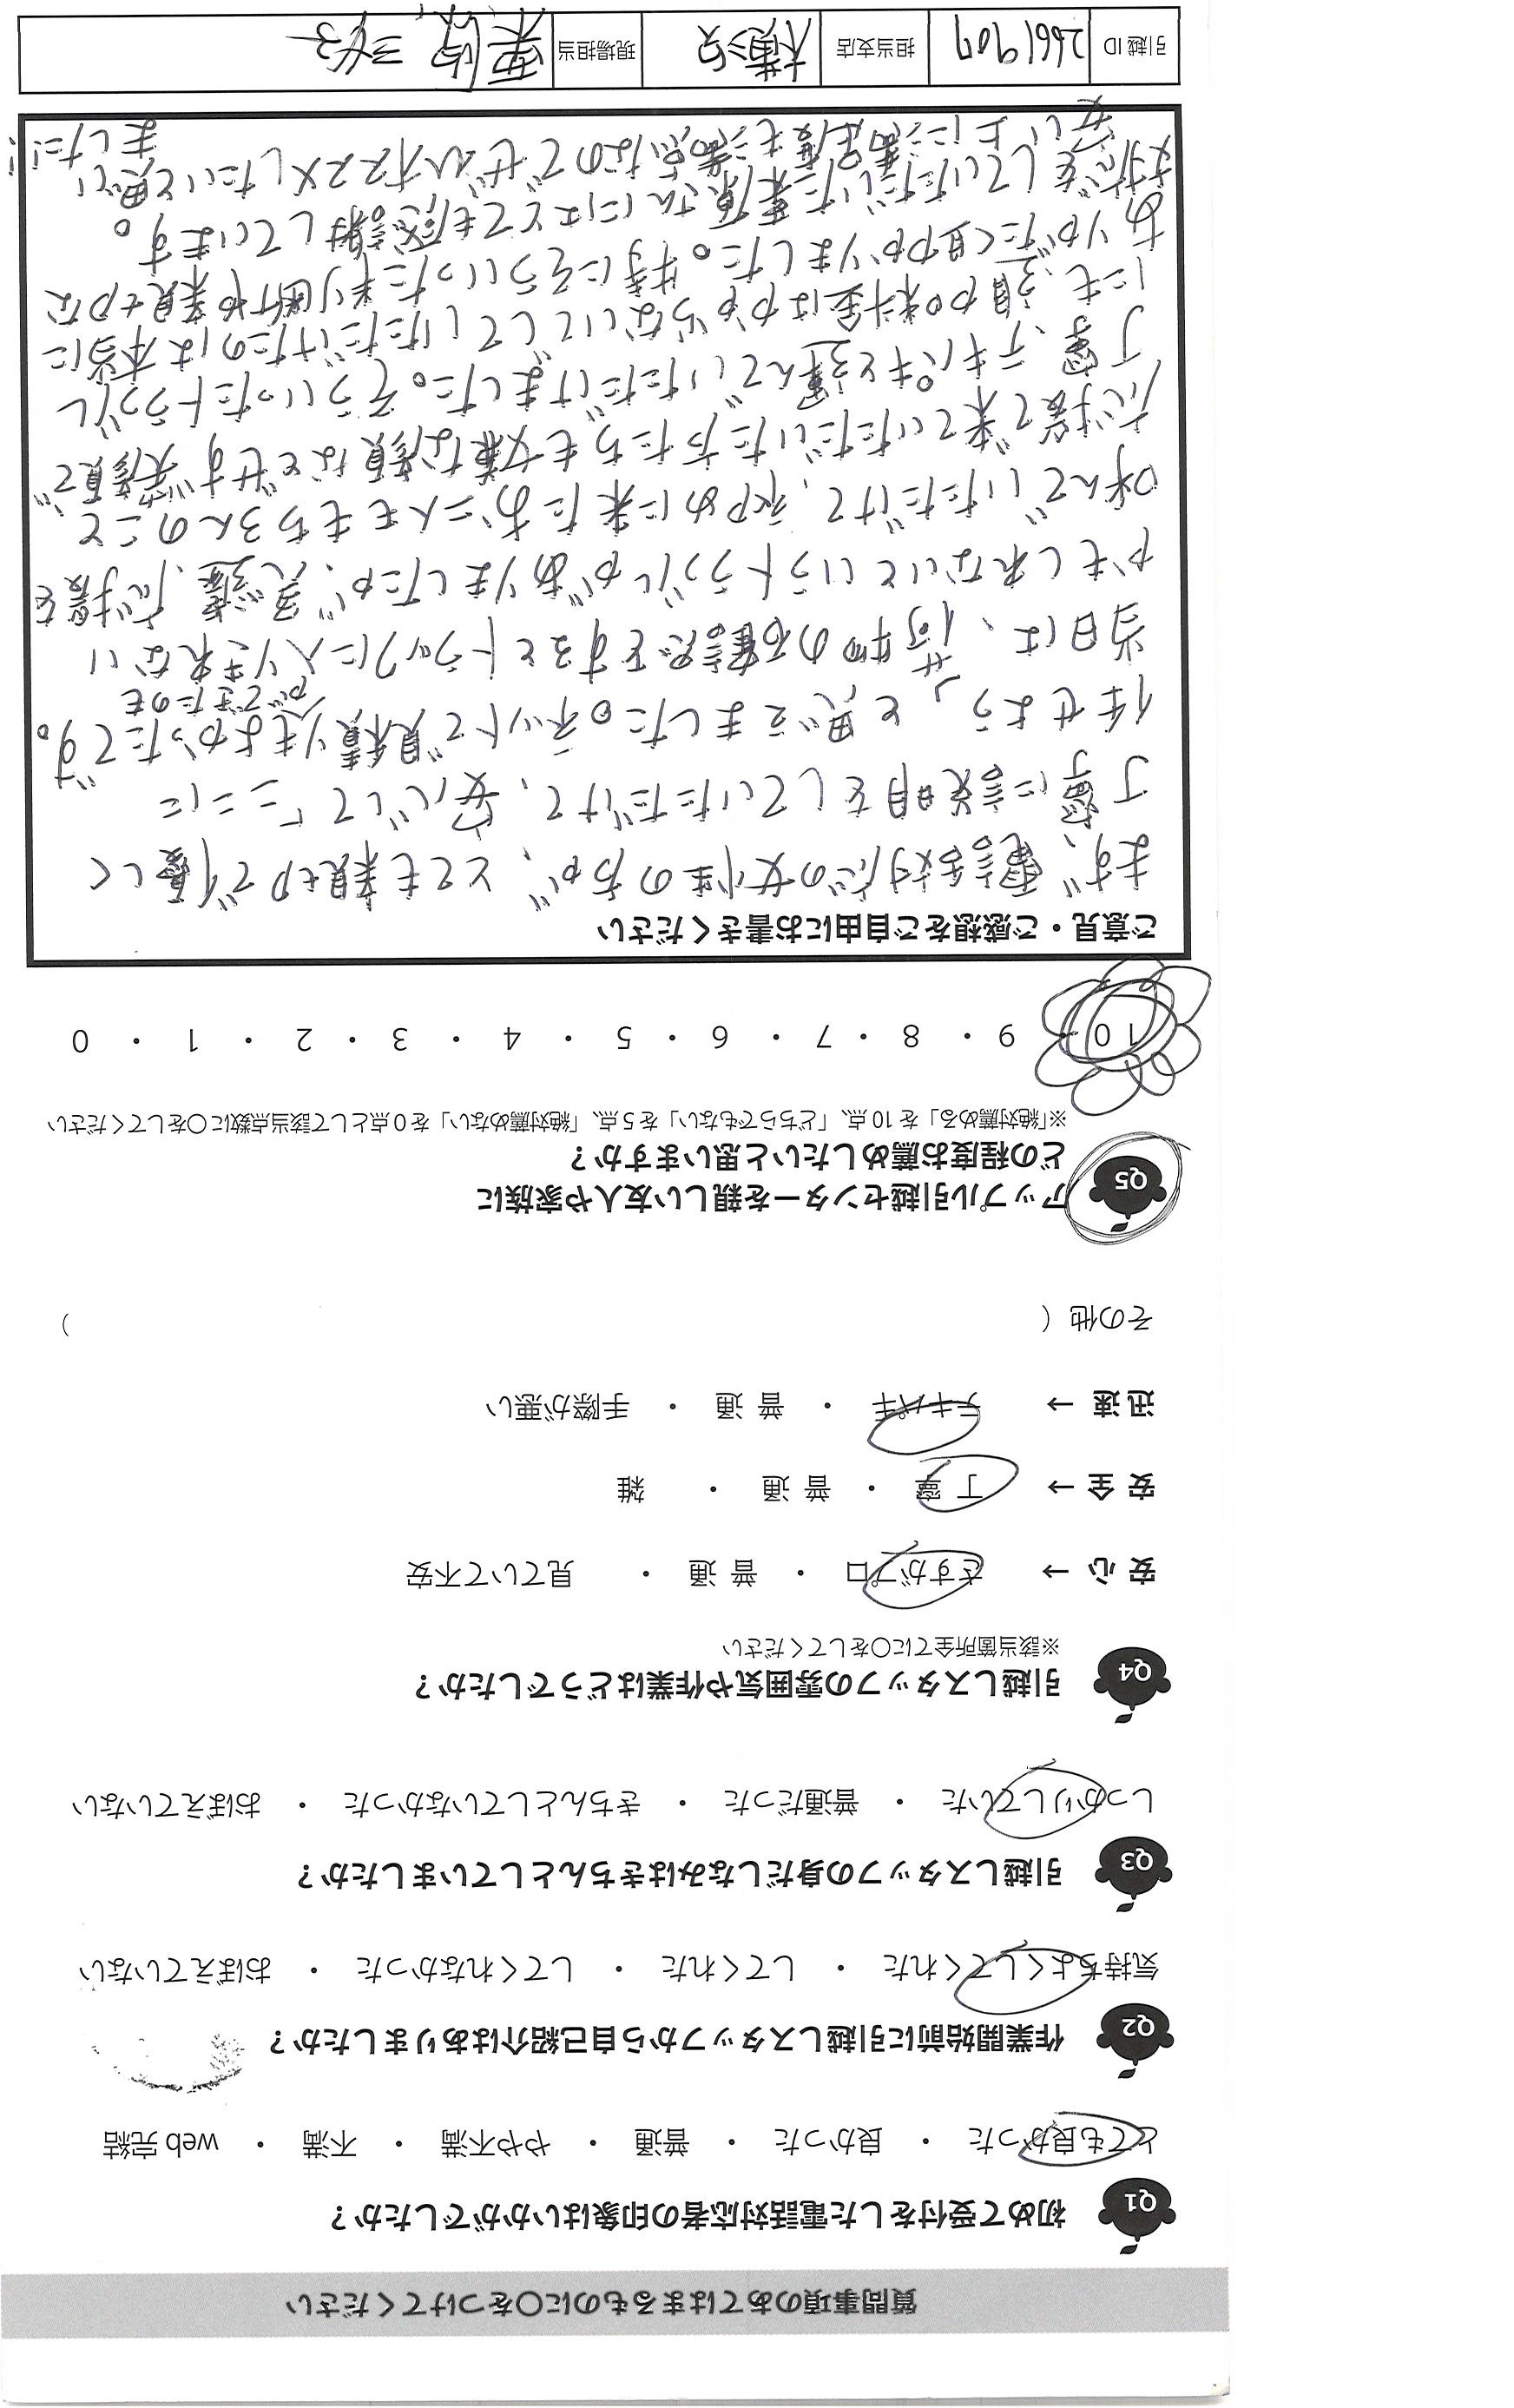 質問事項のあてはまるものに○をつけてください
Q1 初めて受付をした電話対応者の印象はいかがでしたか？
とても良かった ・ 良かった ・ 普通 ・ やや不満 ・ 不満 ・ web完結
Q2 作業開始前に引越しスタッフから自己紹介はありましたか？
気持ちよくしてくれた ・ してくれた ・ してくれなかった ・ おぼえていない
Q3 引越しスタッフの身だしなみはきちんとしていましたか？
しっかりしていた ・ 普通だった ・ きちんとしていなかった ・ おぼえていない
Q4 引越しスタッフの雰囲気や作業はどうでしたか？
※該当箇所全てに○をしてください
安心→ さすがプロ ・ 普通 ・ 見ていて不安
安全→ 丁寧 ・ 普通 ・ 雑
迅速→ テキパキ ・ 普通 ・ 手際が悪い
その他（ ）
Q5 アップル引越センターを親しい友人や家族に
どの程度お薦めしたいと思いますか？
※「絶対薦める」を10点、「どちらでもない」を5点、「絶対薦めない」を0点として該当点数に○をしてください
10 ・ 9 ・ 8 ・ 7 ・ 6 ・ 5 ・ 4 ・ 3 ・ 2 ・ 1 ・ 0
ご意見・ご感想をご自由にお書きください
まず、電話対応の女性の方が、とても親切で優しく
丁寧に説明をしていただけて、安心して「ここに
任せよう」と思えました。ネットで見積りができたのもよかったです。
当日は、荷物の確認をするとトラックに入りきれない
かもしれないというトラブルがありましたが、応援を
呼んでいただけて、初めに来たお二人ももちろんのこと
応援で来ていただいた方たちも嫌な顔などせず笑顔で
丁寧、テキパキと運んでいただけました。そういったトラブル
にも、追加料金はかからないにしていただけたのは本当に
ありがたく助かりました。特にそういった判断や親切な
対応をしていただいた栗原さんにはとても感謝しています。
安い上に満足度も満点なのでぜひオススメしたいと思い
ました!!
引越ID 2661907 担当支店 横浜 現場担当 栗原 三好